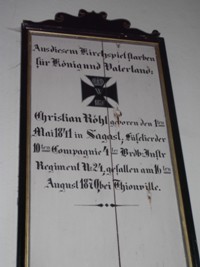 Aus diesem Kirchspiel starben
für König und Vaterland:
Christian Röhl geboren den 1ten
Mai 1841 in Sagast, Füselier der
10ten Compagnie 4ten Brdb: Inftr
Regiment No 24, gefallen am 16ten
August 1870 bei Thionville.